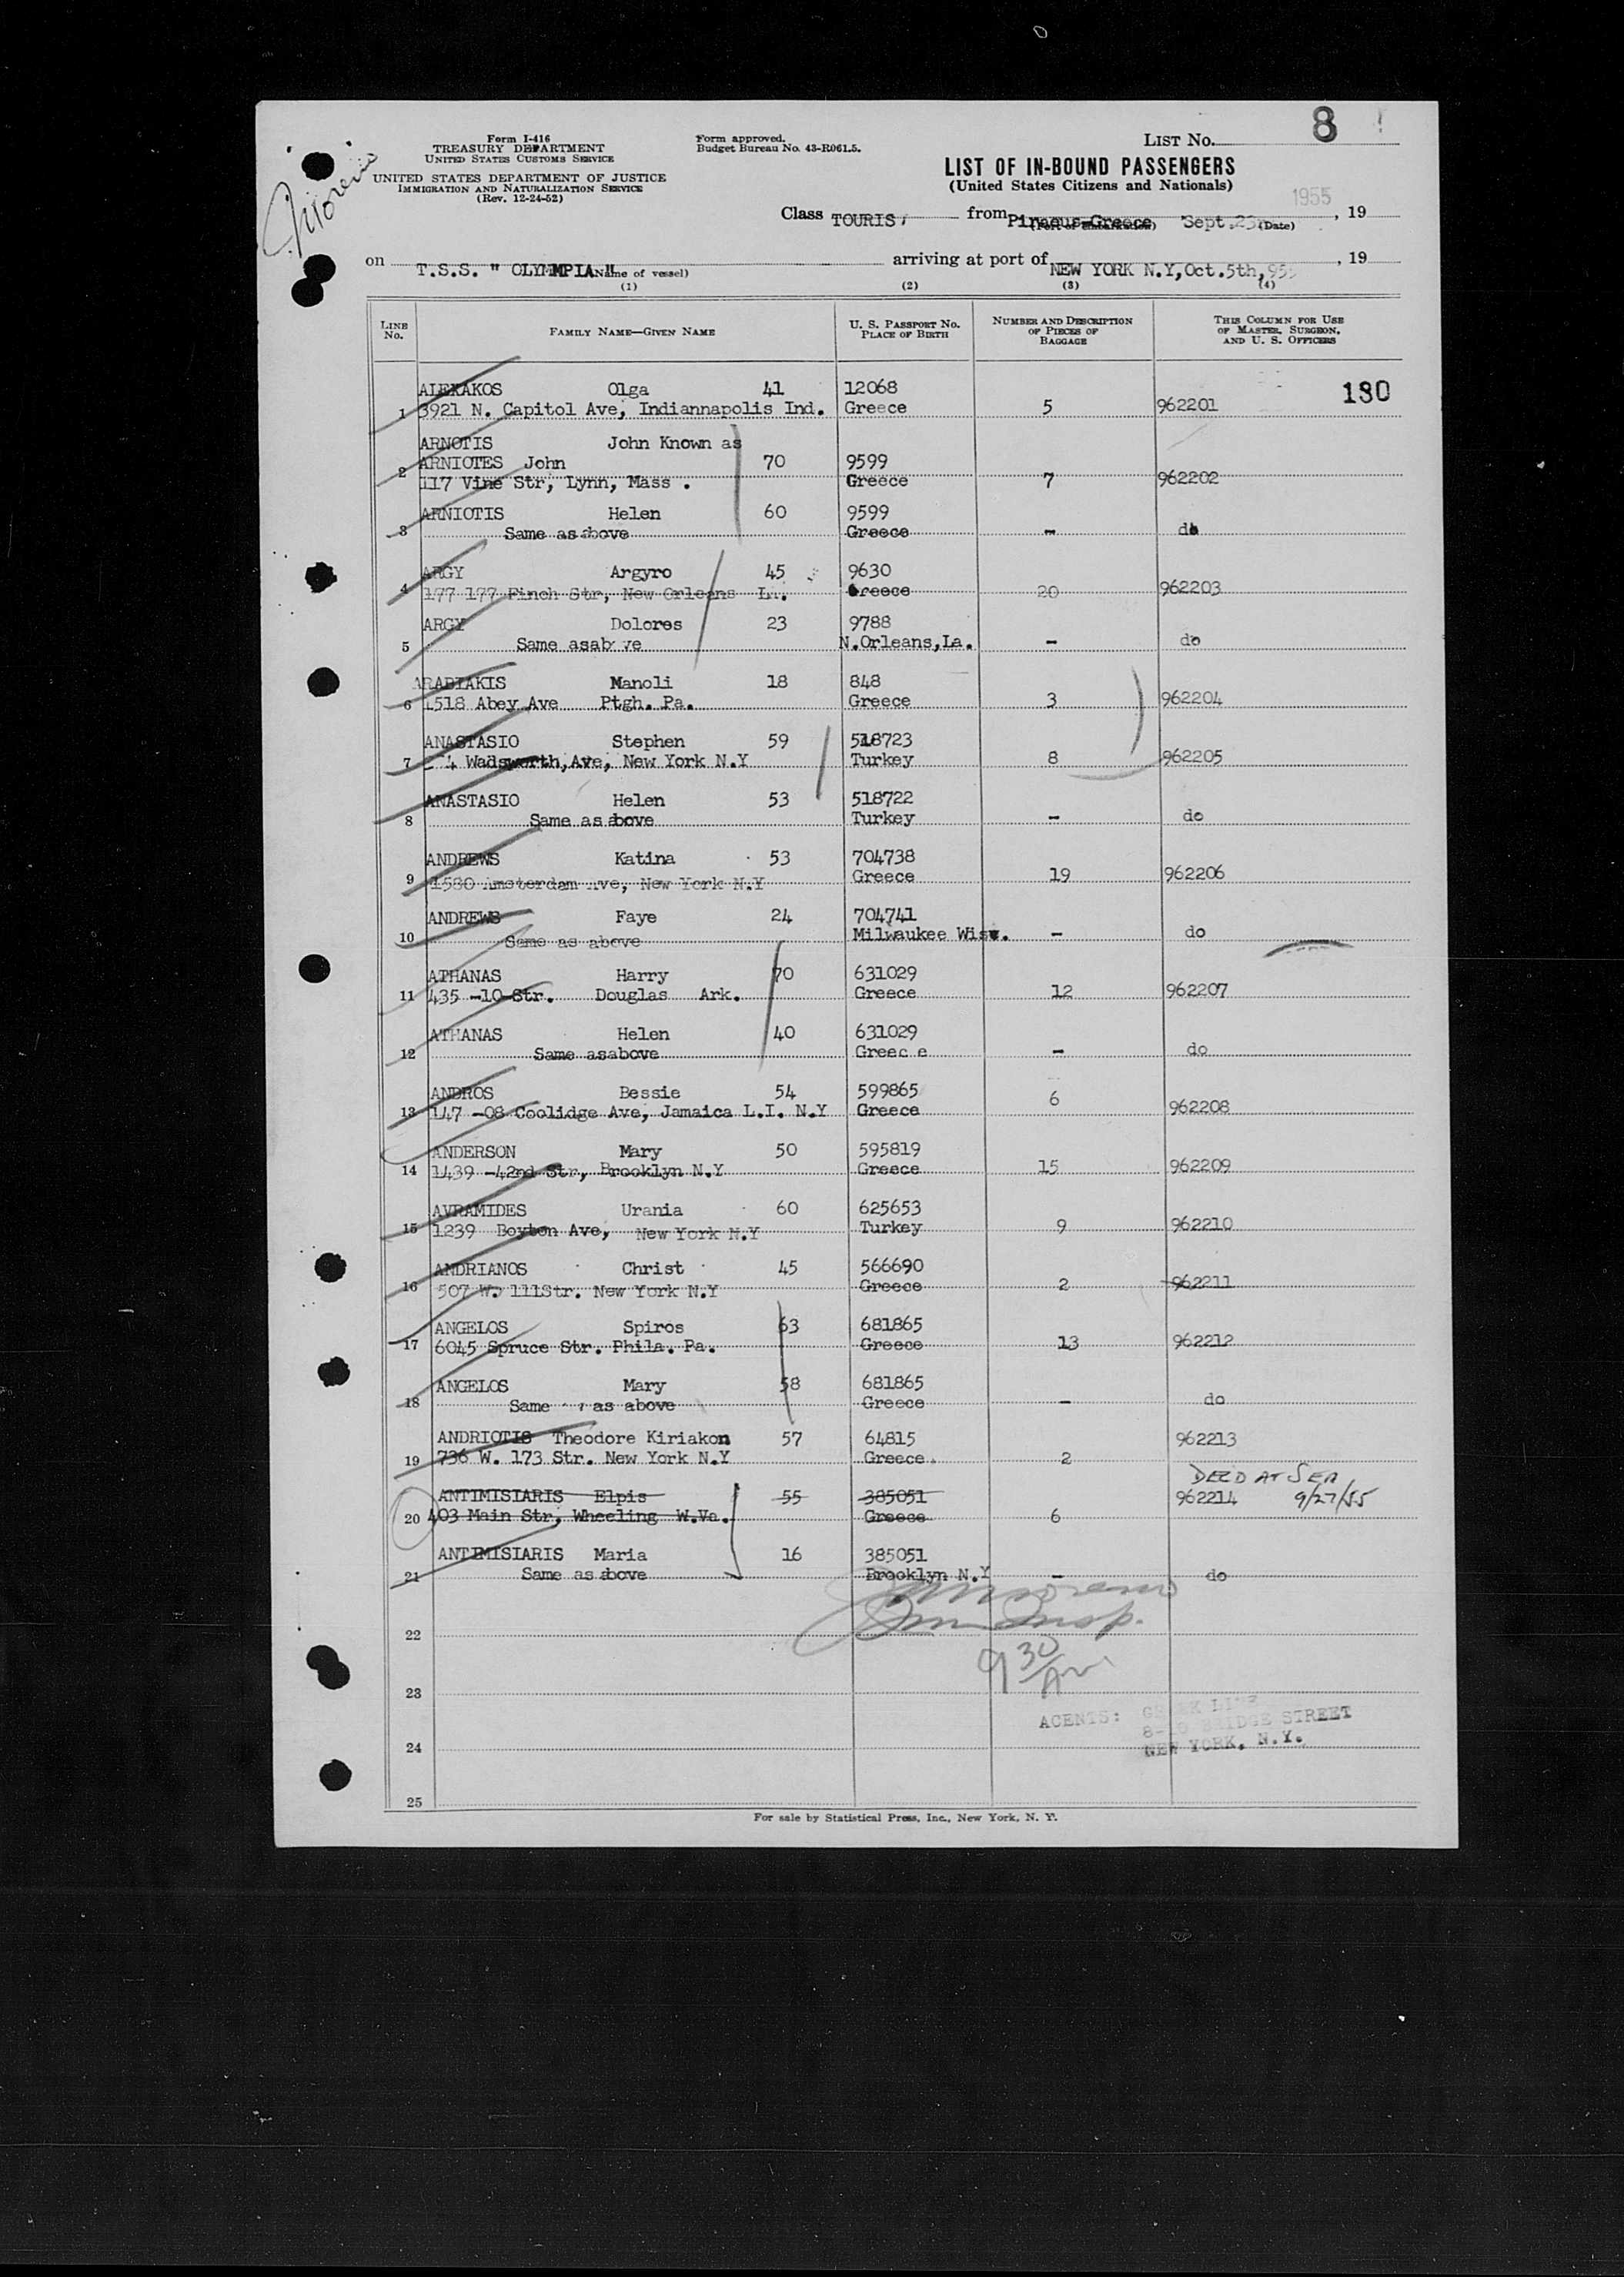 8
Form I-416
TREASURY DEPARTMENT
UNITED STATES CUSTOMS SERVICE
UNITED STATES DEPARTMENT OF JUSTICE
IMMIGRATION AND NATURALIZATION SERVICE
(Rev. 12-24-52)
Form approved.
Budget Bureau No. 43-R061.5.
LIST No.
LIST OF IN-BOUND PASSENGERS
(United States Citizens and Nationals)
1955
Class TOURIS from Piraeus-Greece Sept.23 (Date) , 19
(Port of embarkation)
on T.S.S. " OLYMMPIA " (Name of vessel) arriving at port of NEW YORK N.Y, Oct.5th,955 , 19
(1) (2) (3) (4)
LINE No. FAMILY NAME—GIVEN NAME U. S. PASSPORT No. PLACE OF BIRTH NUMBER AND DESCRIPTION OF PIECES OF BAGGAGE THIS COLUMN FOR USE OF MASTER, SURGEON, AND U. S. OFFICERS
ALEXAKOS Olga 41 12068 130
1 3921 N. Capitol Ave, Indiannapolis Ind. Greece 5 962201
ARNOTIS John Known as
2 ARNIOTES John 70 9599
117 Vine Str, Lynn, Mass . Greece 7 962202
ARNIOTIS Helen 60 9599
3 Same as above Greece - do
ARGY Argyro 45 9630
4 177 177 Finch Str, New Orleans La. Greece 20 962203
ARGY Dolores 23 9788
5 Same asab ve N.Orleans,La. - do
ARADIAKIS Manoli 18 848
6 1518 Abey Ave Ptgh. Pa. Greece 3 962204
ANASTASIO Stephen 59 518723
7 4 Wadsworth,Ave, New York N.Y Turkey 8 962205
ANASTASIO Helen 53 518722
8 Same as above Turkey - do
ANDREWS Katina 53 704738
9 1580 Amsterdam Ave, New York N.Y Greece 19 962206
ANDREWS Faye 24 704741
10 Same as above Milwaukee Wisc. - do
ATHANAS Harry 70 631029
11 435 -10-Str. Douglas Ark. Greece 12 962207
ATHANAS Helen 40 631029
12 Same asabove Greec e - do
ANDROS Bessie 54 599865 6
13 147 -08 Coolidge Ave, Jamaica L.I. N.Y Greece 962208
ANDERSON Mary 50 595819
14 1439 -42nd Str, Brooklyn N.Y Greece 15 962209
AVRAMIDES Urania 60 625653
15 1239 Boyton Ave, New York N.Y Turkey 9 962210
ANDRIANOS Christ 45 566690
16 507 W. 111Str. New York N.Y Greece 2 962211
ANGELOS Spiros 63 681865
17 6045 Spruce Str. Phila. Pa. Greece 13 962212
ANGELOS Mary 58 681865
18 Same as above Greece - do
ANDRIOTIS Theodore Kiriakon 57 64815 962213
19 736 W. 173 Str. New York N.Y Greece 2
DEED AT SEA
ANTIMISIARIS Elpis 55 385051 962214 9/27/55
20 403 Main Str, Wheeling W.Va. Greece 6
ANTIMISIARIS Maria 16 385051
21 Same as above Brooklyn N.Y - do
Imm Insp.
22
9 30/AM
23
AGENTS: GREEK LINE
8-10 BRIDGE STREET
24
NEW YORK, N.Y.
25
For sale by Statistical Press, Inc., New York, N. Y.